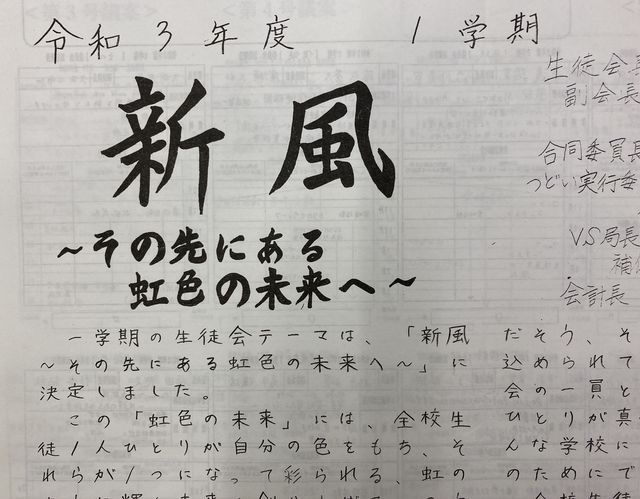 令和3年度 1学期
新風
～その先にある
虹色の未来へ～
一学期の生徒会テーマは、「新風
～その先にある虹色の未来へ～」に
決定しました。
この「虹色の未来」には、全校生
徒1人ひとりが自分の色をもち、そ
れらが1つになって彩られる、虹の
だそう、そ
込められて
会の一員と
ひとりが真
んな学校に
のためにで
生徒会長
副会長
合同委員長
つどい実行委
VS局長
補
会計長